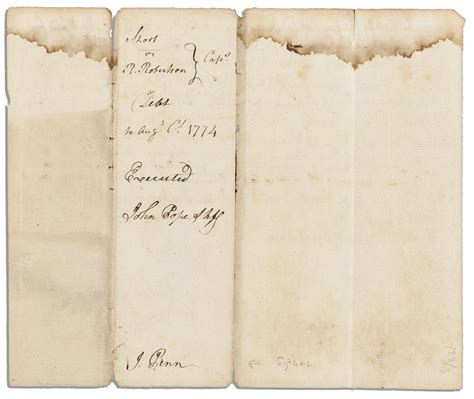 Short
vs
R. Robertson } Cap^s
Debt
to Aug^t C^t 1774
Executed
John Pope
J. Penn